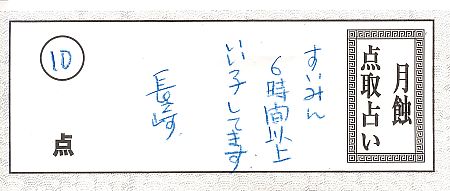 月蝕
点取占い
すいみん
6時間以上
いい子してます
長崎
10
点